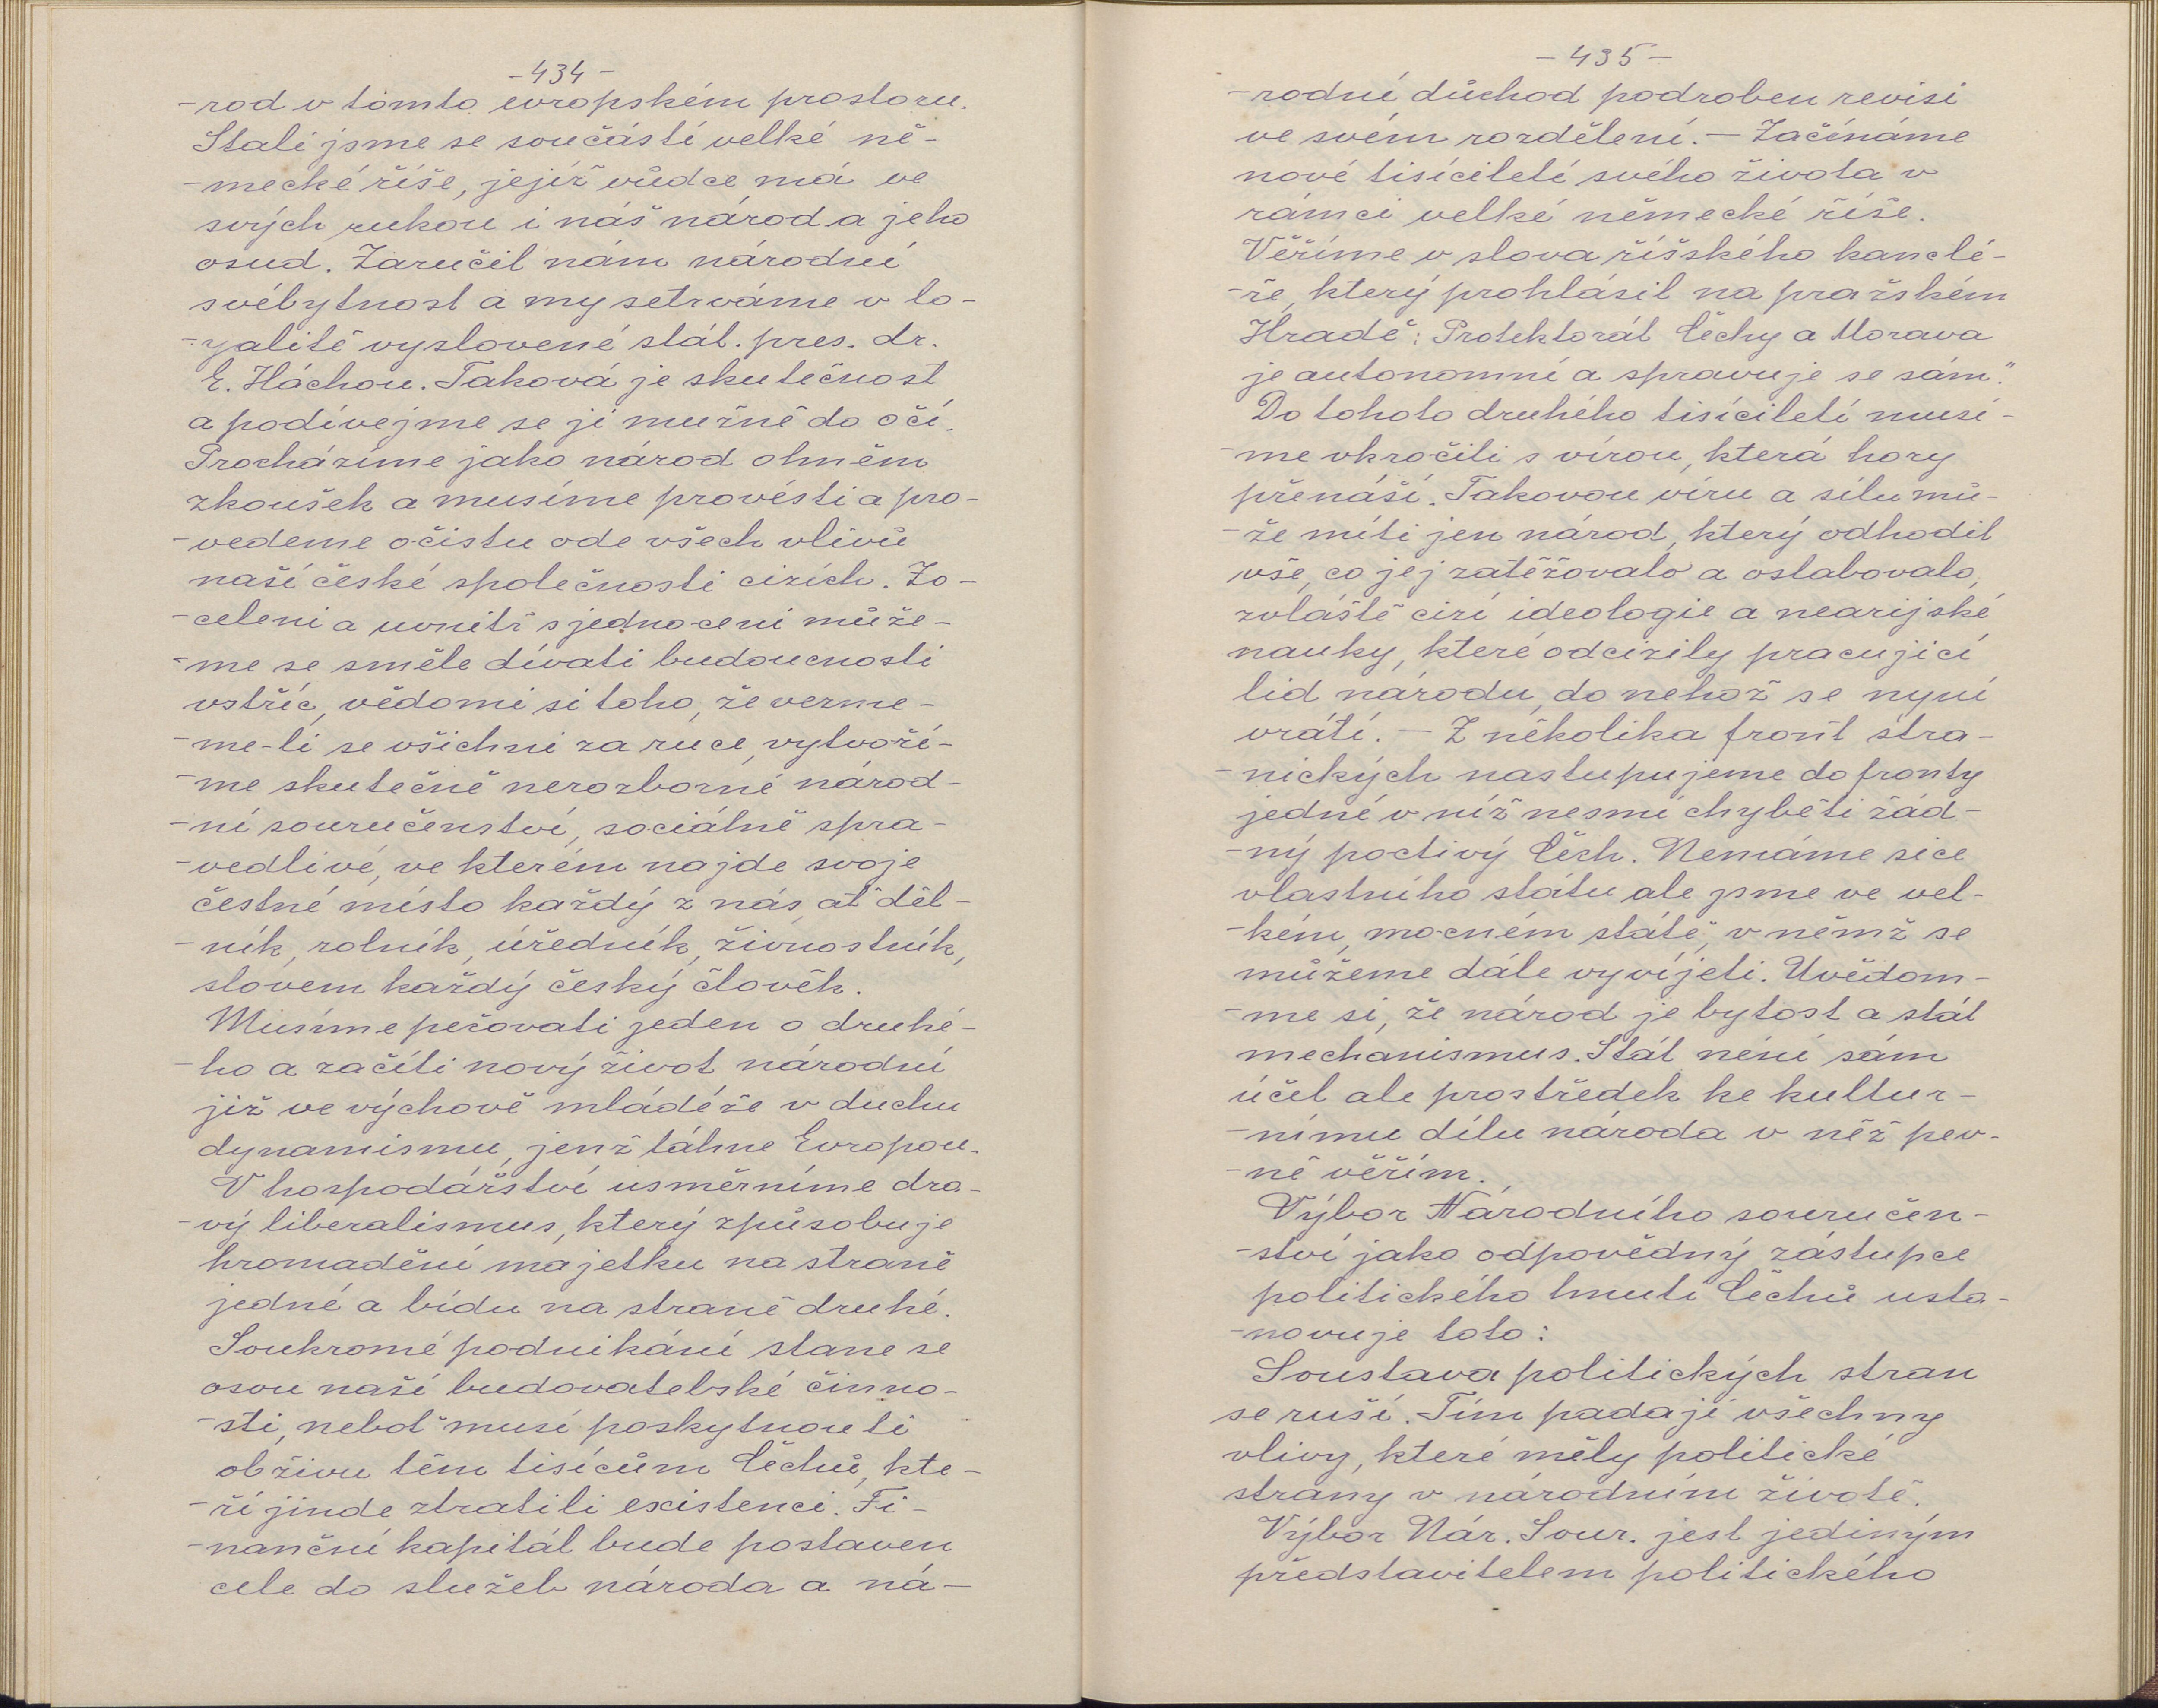 -434-
-rod v tomto evropském prostoru.
Stali jsme se součástí velké ně-
-mecké říše, jejíž vůdce má ve
svých rukou i náš národ a jeho
osud. Zaručil nám národní
svébytnost a my setrváme v lo-
-yalitě vyslovené stát. pres. dr.
E. Háchou. Taková je skutečnost
a podívejme se jí mužně do očí.
Procházíme jako národ ohněm
zkoušek a musíme provésti a pro-
-vedeme očistu ode všech vlivů
naší české společnosti cizích. Zo-
-celeni a uvnitř sjednoceni může-
-me se směle dívati budoucnosti
vstříc, vědomi si toho, že vezme-
-me-li se všichni za ruce, vytvoří-
-me skutečně nerozborné národ-
-ní souručenství, sociálně spra-
-vedlivé, ve kterém najde svoje
čestné místo každý z nás, ať děl-
-ník, rolník, úředník, živnostník,
slovem každý český člověk.
Musíme pečovati jeden o druhé-
-ho a začíti nový život národní
již ve výchově mládéže v duchu
dynamismu, jenž táhne Evropou.
V hospodářství usměrníme dra-
-vý liberalismus, který způsobuje
hromadění majetku na straně
jedné a bídu na straně druhé.
Soukromé podnikání stane se
osou naší budovatelské činno-
-sti, neboť musí poskytnouti
obživu těm tisícům Čechů, kte-
-ří jinde ztratili existenci. Fi-
-nanční kapitál bude postaven
cele do služeb národa a ná-
-435-
-rodní důchod podroben revisi
ve svém rozdělení. - Začínáme
nové tisíciletí svého života v
rámci velké německé říše.
Věříme v slova říšského kanclé-
-ře, který prohlásil na pražském
Hradě: Protektorát Čechy a Morava
je autonomní a spravuje se sám."
Do tohoto druhého tisíciletí musí-
-me vkročiti s vírou, která hory
přenáší. Takovou víru a sílu mů-
-že míti jen národ, který odhodil
vše, co jej zatěžovalo a oslabovalo,
zvláště cizí ideologie a nearijské
nauky, které odcizily pracující
lid národu, do nehož se nyní
vrátí. - Z několika front stra-
-nických nastupujeme do fronty
jedné v níž nesmí chyběti žád-
-ný poctivý Čech. Nemáme sice
vlastního státu ale jsme ve vel-
-kém, mocném státě, v němž se
můžeme dále vyvíjeti. Uvědom-
-me si, že národ je bytost a stát
mechanismus. Stát není sám
účel ale prostředek ke kultur-
-nímu dílu národa v něž pev-
-ně věřím.
Výbor Národního souručen-
-ství jako odpovědný zástupce
politického hnutí Čechů usta-
-novuje toto:
Soustava politických stran
se ruší. Tím padají všechny
vlivy, které měly politické
strany v národním životě.
Výbor Nár. Sour. jest jediným
představitelem politického